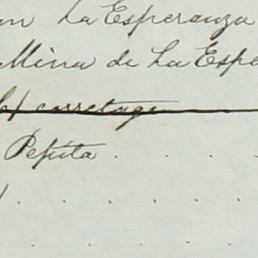 La Esperanza
Mina de La Espe
carretage
Pepita . . .